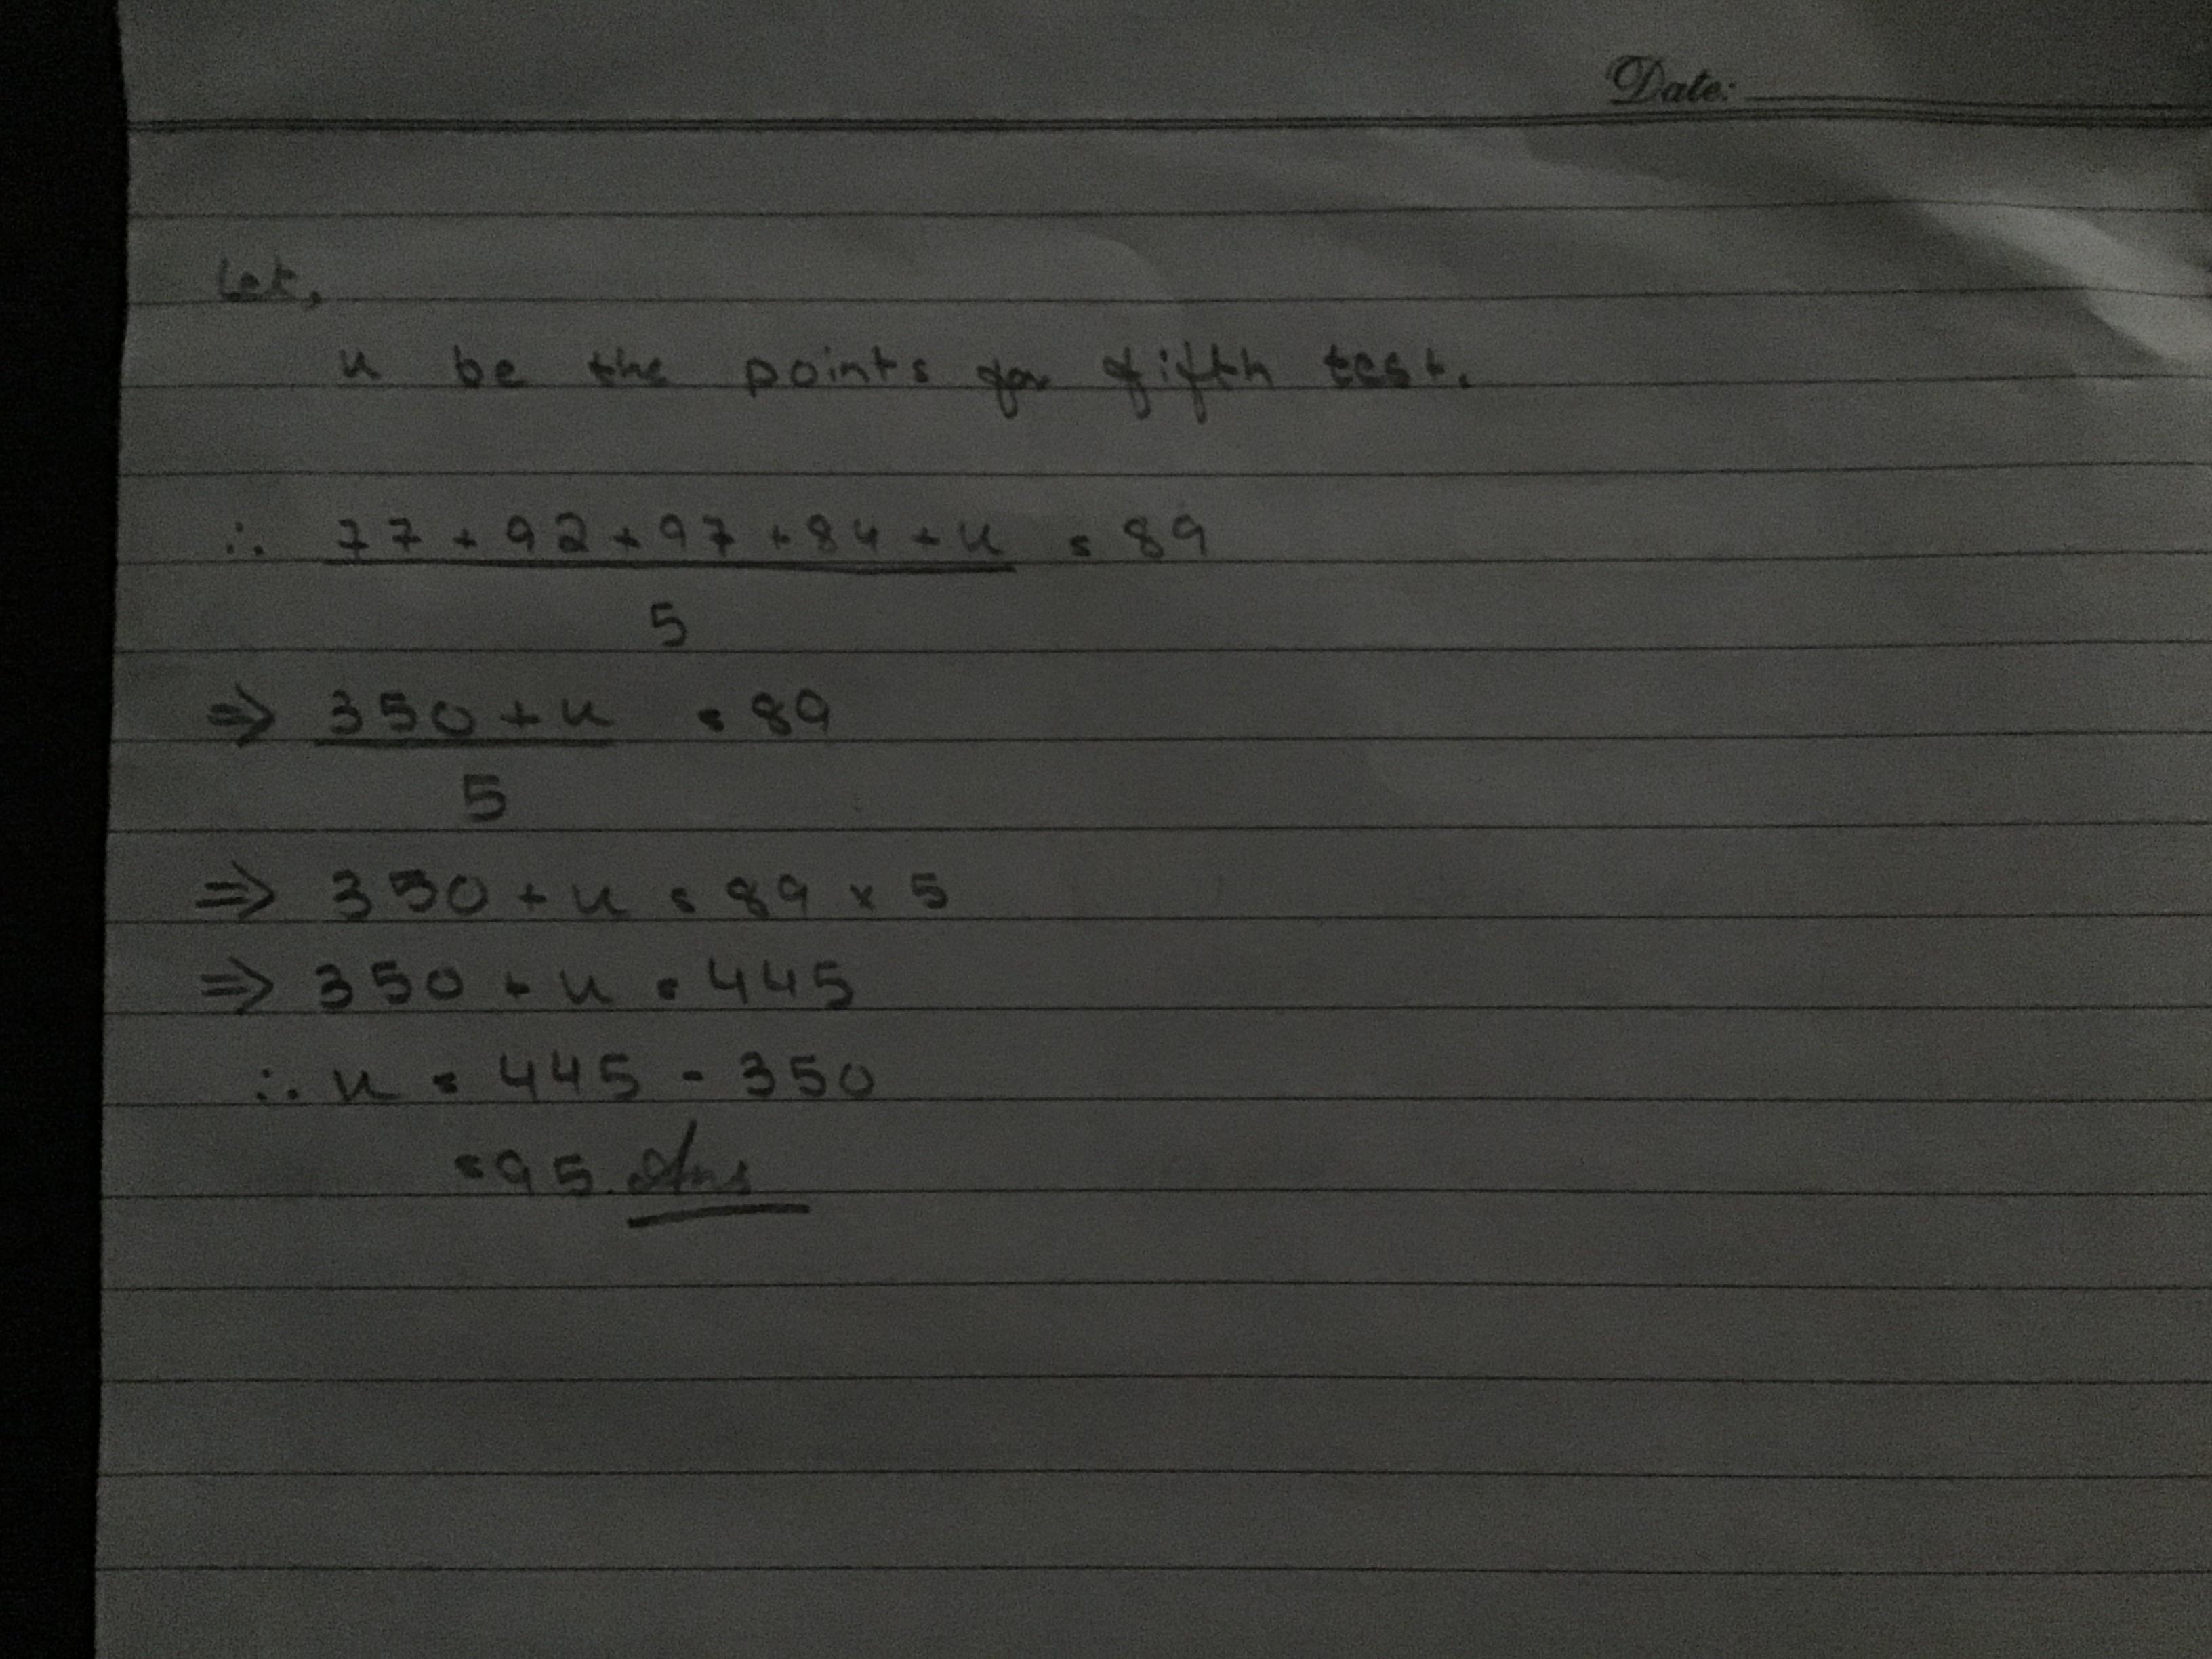 Date:
Let,
x be the points for fifth test.
∴ 77 + 92 + 97 + 84 + x = 89
5
⇒ 350 + x = 89
5
⇒ 350 + x = 89 × 5
⇒ 350 + x = 445
∴ x = 445 - 350
= 95. Ans